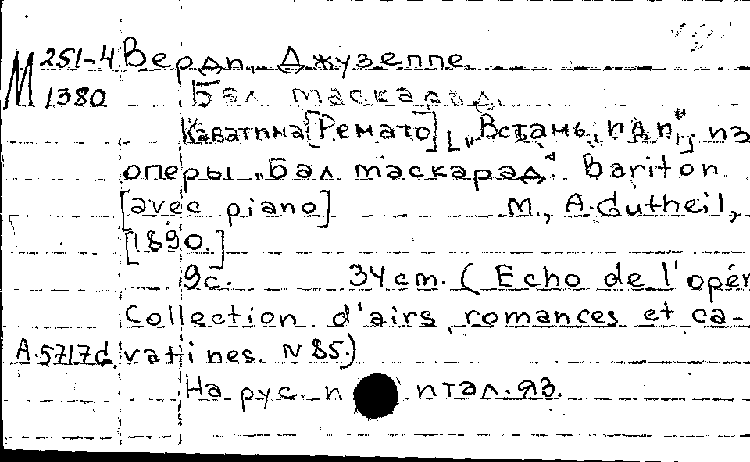 М 251-4 Верди, Джузеппе
1380 Бал маскарад.
Каватина [Ренато] [„Встань, и д п"; из
оперы „Бал маскарад". Bariton
[avec piano] М., A. Gutheil,
[1890.]
9с. 34 cm. (Echo de l'opér
Collection d'airs, romances et ca-
A.5717d vatines. N 85.)
На рус. и итал. яз.